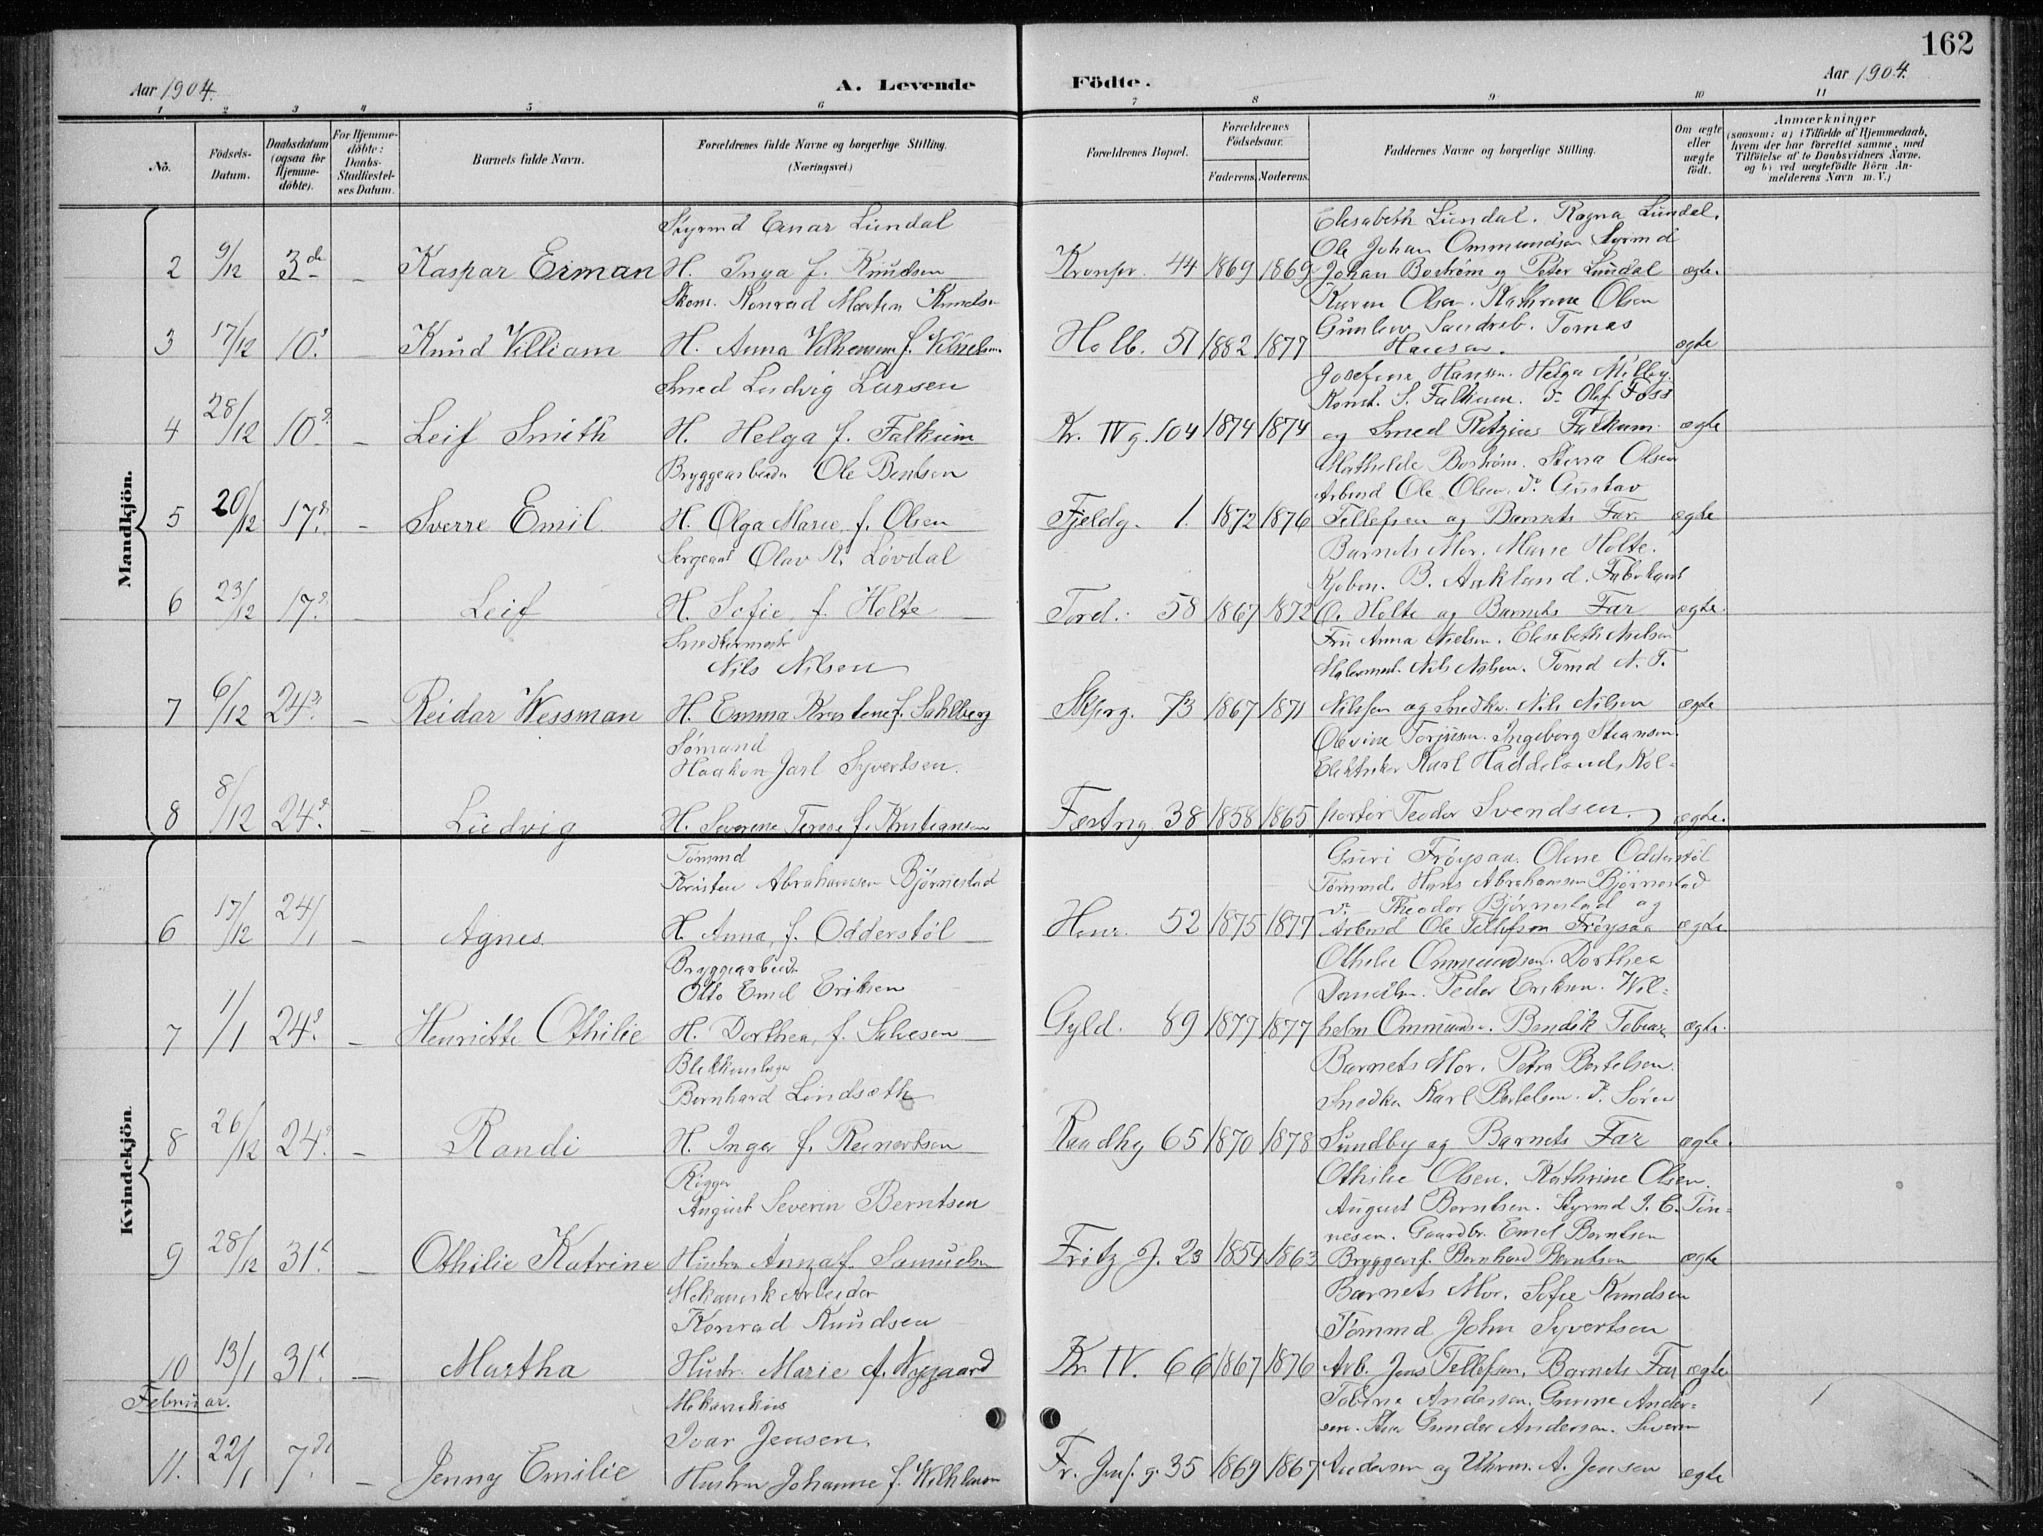 162
Aar 1904.
A. Levende
Födte.
Aar 1904.
1 2 3 4 5 6 7 8 9 10 11
No.
Födsels-Datum.
Daabsdatum (ogsaa for Hjemmedöbte).
For Hjemmedöbte: Daabs-Stadfæstelses Datum.
Barnets fulde Navn.
Forældrenes fulde Navne og borgerlige Stilling. (Næringsvei.)
Forældrenes Bopæl.
Forældrenes Födselsaar.
Faderens. Moderens.
Faddernes Navne og borgerlige Stilling.
Om ægte eller uægte født.
Anmærkninger
(saasom: a) i Tilfælde af Hjemmedaab,
hvem der har forrettet samme, med
Tilföielse af to Daabsvidners Navne,
og b) ved uægtefödte Börn An-
melderens Navn m. V.)
Mandkjön.
Styrmd Einar Lundal
Elisabeth Lundal. Ragna Lundal.
Ole Johan Ommundsen Styrmd
2 9/12 3de – Kaspar Erman H. Inga f. Knudsen Kronpr. 44 1869 1869 Johan Boström og Peter Lundal ægte.
Skom. Konrad Martin Knudsen
Karen Olsen. Kathrine Olsen
Gunlew Sandreb. Tomas
3 17/12 10. – Knud Villiam H. Anna f. Holb. 51 1882 1877 Hansen. ægte
Smed Ludvig Larsen
Josefine Hansen. Helga
Konst. S. Falkum. do Olaf Foss
4 28/12 10. – Leif Smith H. Helga f. Falkum Kr. IV g. 104 1874 1874 og Smed Falkum. ægte
Bryggearbeider Ole Bentsen
Mathilde Boström. Olsen
Arbmd Ole Olsen. do Gustav
5 20/12 17. – Sverre Emil. H. Olga Marie f. Olsen Fjeldg. 1. 1872 1876 Tellefsen og Barnets Far. ægte
Sergeant Olav K. Lövdal
Barnets Mor. Marie Holte.
Kjöbm. B. Aakland. Fabrikant
6 23/12 17. Leif H. Sofie f. Holte Tord. 58 1867 1872 O. Holte og Barnets Far ægte.
Snedkermester
Nils Nilsen
Fru Anna Nielsen. Elisabeth Nielsen
Malermest. Nils Nilsen. Tømd N. T.
7 6/12 24. – Reidar Wessman H. Emma Kristine f. Sahlberg Skjerg. 73 1867 1871 Nilssen og Snedkr. Nils Nilsen ægte
Sømand
Haakon Jarl Syvertsen.
Olevine Torjusen. Ingeborg Steansen.
Elektriker Karl Haddeland, Kol-
8 8/12 24. – Ludvig H. Severine Terese f. Kristiansen Fæstng. 38 1858 1865 portör Teodor Svendsen. ægte.
Kvindekjön.
Tømmd
Kristen Abrahamsen Björnestad
Guri Fröysaa. Olene Odderstöl
Tømmd. Hans Abrahamsen Björnestad
do Theodor Björnestad og
6 17/12 24/1 – Agnes. H. Anna, f. Odderstöl Henr. 52 1875 1877 Arbmd Ole Tellefsen Fröysaa ægte.
Bryggearbeid.
Otto Emil Eriksen
Othilie Ommundsen. Dorthea
Danielsen. Peder Eriksen. Wil-
7 1/1 24. – Henriette Othilie H. Dorthea, f. Salvesen Gyld. 89 1877 1877 helm Ommunds. Bendik Tobias ægte.
Blikkenslager
Bernhard Lindsæth
Barnets Mor. Petra Bertelsen.
Snedker Karl Bertelsen. do. Sören
8 26/12 24. – Randi H. Inger f. Reinertsen Raadhg 65 1870 1878 Sundby og Barnets Far ægte.
Rigger
August Severin Berntsen
Othilie Olsen. Kathrine Olsen.
August Berntsen. Styrmd J. C. Tön-
nesen. Gaardbr. Emil Berntsen
9 28/12 31. – Othilie Katrine Hustru Anna f. Samuelsen Fritz J. 23 1854 1863 Bryggersv. Bernhard Berntsen ægte
Mekanisk Arbeider
Konrad Knudsen
Barnets Mor. Sofie Knudsen
Tömmd John Syvertsen
10 13/1 31. – Martha Hustr. Marie f. Nygaard Kr. IV. 66 1867 1876 Arb. Jens Tellefsen, Barnets Far ægte
Februar.
Mekanikus
Ivar Jensen.
Tobine Andersen. Gunine Ander-
sen. Gunder Andersen. Severin
11. 22/1 7. – Jenny Emilie Hustru Johanne f. Wilhelmsen Fr. Jos. g. 35 1869 1867 Andersen og Uhrm. A. Jensen ægte